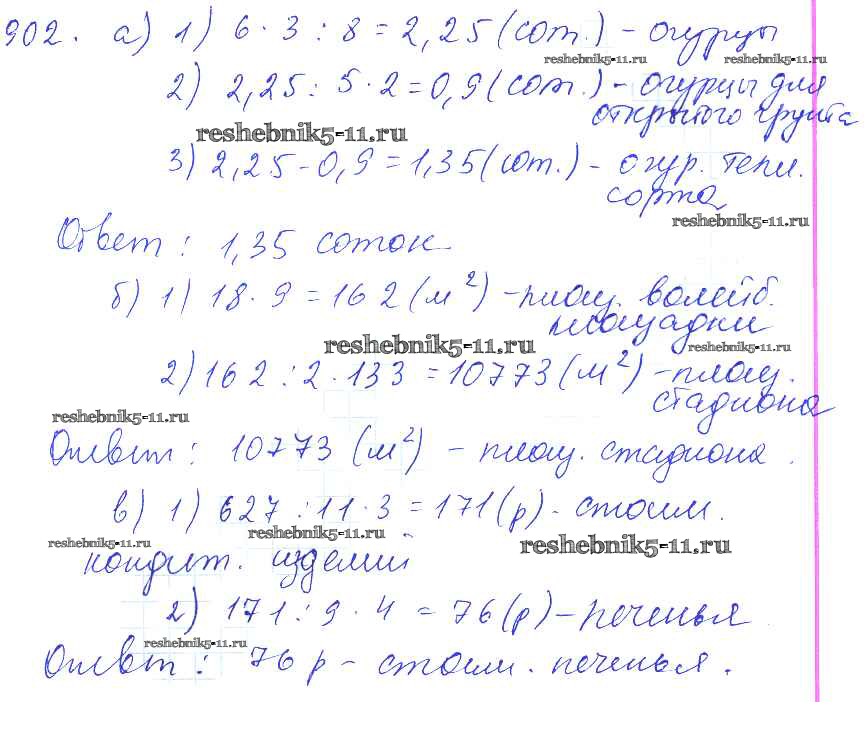 902. а) 1) 6 · 3 : 8 = 2,25 (сот.) - огурцы
reshebnik5-11.ru reshebnik5-11.ru
2) 2,25 : 5 · 2 = 0,9 (сот.) - огурцы для
открытого грунта
reshebnik5-11.ru
3) 2,25 - 0,9 = 1,35 (сот.) - огур. тепл.
сорта
reshebnik5-11.ru
Ответ: 1,35 соток
б) 1) 18 · 9 = 162 (м²) - площ. волейб.
площадки
reshebnik5-11.ru reshebnik5-11.ru
2) 162 : 2 · 133 = 10773 (м²) - площ.
стадиона
reshebnik5-11.ru
Ответ: 10773 (м²) - площ. стадиона.
в) 1) 627 : 11 · 3 = 171 (р) - стоим.
reshebnik5-11.ru reshebnik5-11.ru reshebnik5-11.ru
кондит. изделий
2) 171 : 9 · 4 = 76 (р) - печенья
reshebnik5-11.ru
Ответ: 76 р - стоим. печенья.